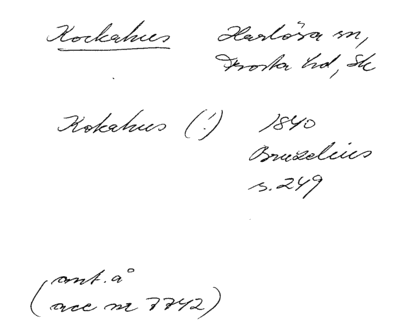 Kockahus Harlösa sn,
Frosta hd, Sk
Kokahus (!) 1840
Bruzelius
s. 249
(ant. å
acc nr 7742)